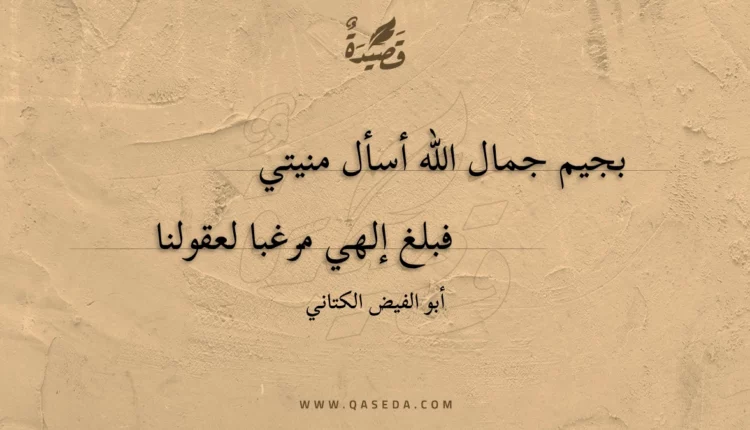 قصيدة
بجيم جمال الله أسأل منيتي
فبلغ إلهي مرغبا لعقولنا
أبو الفيض الكتاني
WWW.QASEDA.COM